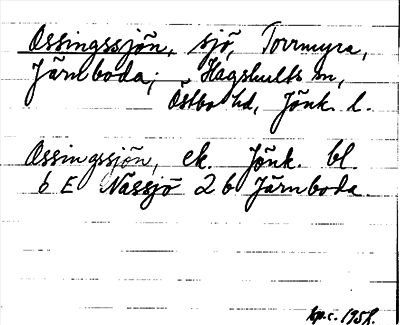 Ossingssjön, sjö, Torrmyra,
Järnboda; Hagshults sn,
Östbo hd, Jönk. l.
Ossingssjön, ek. Jönk. bl.
6 E Nässjö 2 b Järnboda.
1958.